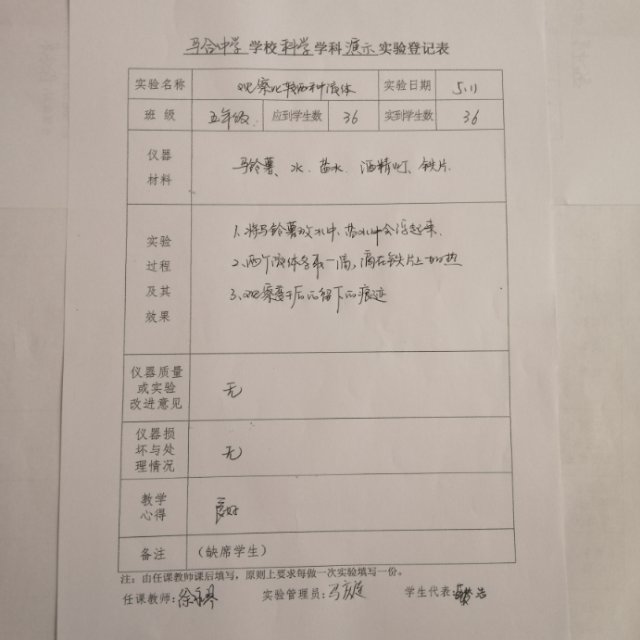 马合中学学校科学学科演示实验登记表
实验名称 观察比较两种液体 实验日期 5.11
班级 五年级 应到学生数 36 实到学生数 36
仪器材料 马铃薯、水、盐水、酒精灯、铁片
实验过程及其效果
1、将马铃薯放水中、盐水中会浮起来.
2、两个液体各取一滴,滴在铁片上加热
3、观察蒸干后的留下的痕迹
仪器质量或实验改进意见 无
仪器损坏与处理情况 无
教学心得 良好
备注 (缺席学生)
注:由任课教师课后填写,原则上要求每做一次实验填写一份。
任课教师: 实验管理员: 学生代表: